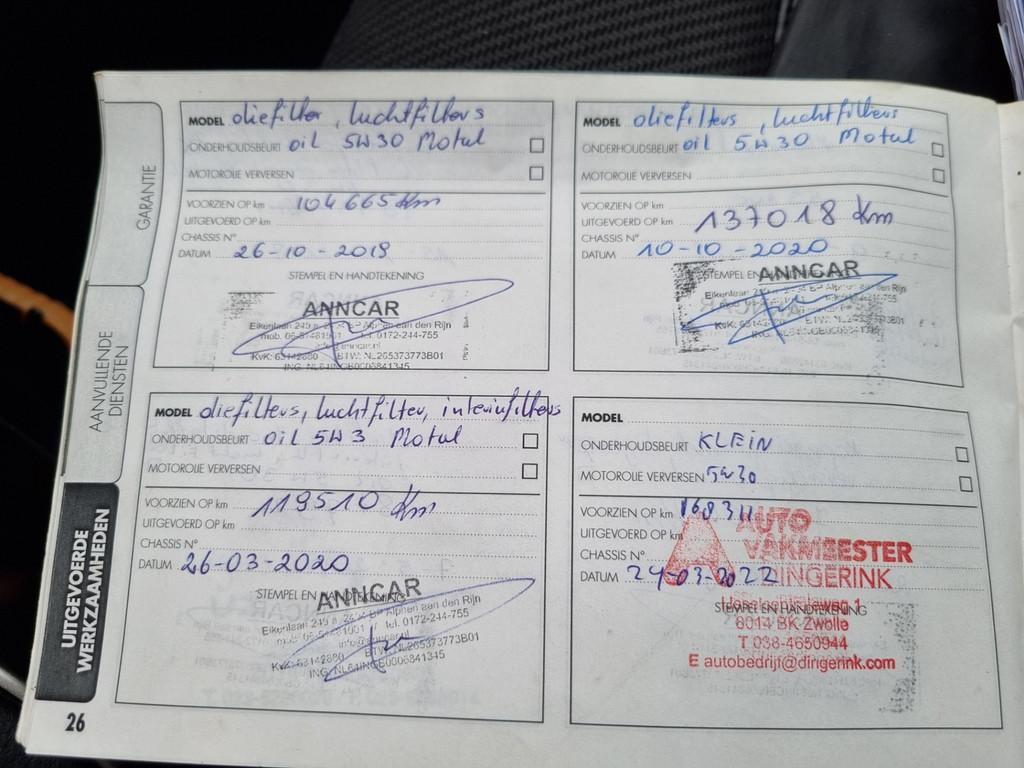 GARANTIE
AANVULLENDE
DIENSTEN
UITGEVOERDE
WERKZAAMHEDEN
26
MODEL oliefilter, luchtfilters
ONDERHOUDSBEURT oil 5W30 Motul
MOTOROLIE VERVERSEN
VOORZIEN OP km 104665 Km
UITGEVOERD OP km
CHASSIS N°
DATUM 26-10-2019
STEMPEL EN HANDTEKENING
ANNCAR
Eikenlaan 249 a, EP Alphen aan den Rijn
mob. Tel. 0172-244-755
KvK: 63142880 BTW: NL265373773B01
ING: NL64INGB0006841345
MODEL oliefilters, luchtfilters
ONDERHOUDSBEURT oil 5W30 Motul
MOTOROLIE VERVERSEN
VOORZIEN OP km
UITGEVOERD OP km 137018 Km
CHASSIS N°
DATUM 10-10-2020
STEMPEL EN
ANNCAR
Eikenlaan Alphen aan den Rijn
MODEL oliefilters, luchtfilter, interiufilters
ONDERHOUDSBEURT oil 5W3 Motul
MOTOROLIE VERVERSEN
VOORZIEN OP km 119510 Km
UITGEVOERD OP km
CHASSIS N°
DATUM 26-03-2020
STEMPEL EN HANDTEKENING
ANNCAR
Eikenlaan 249 a, EP Alphen aan den Rijn
Tel. 0172-244-755
info@anncar.nl
KvK: 63142880 BTW: NL265373773B01
ING: NL64INGB0006841345
MODEL
ONDERHOUDSBEURT KLEIN
MOTOROLIE VERVERSEN 5w30
VOORZIEN OP km 168311
UITGEVOERD OP km
CHASSIS N°
DATUM 24-03-2022
AUTO
VAKMEESTER
DINGERINK
STEMPEL EN HANDTEKENING
8014 BK Zwolle
T 038-4650944
E autobedrijf@dingerink.com